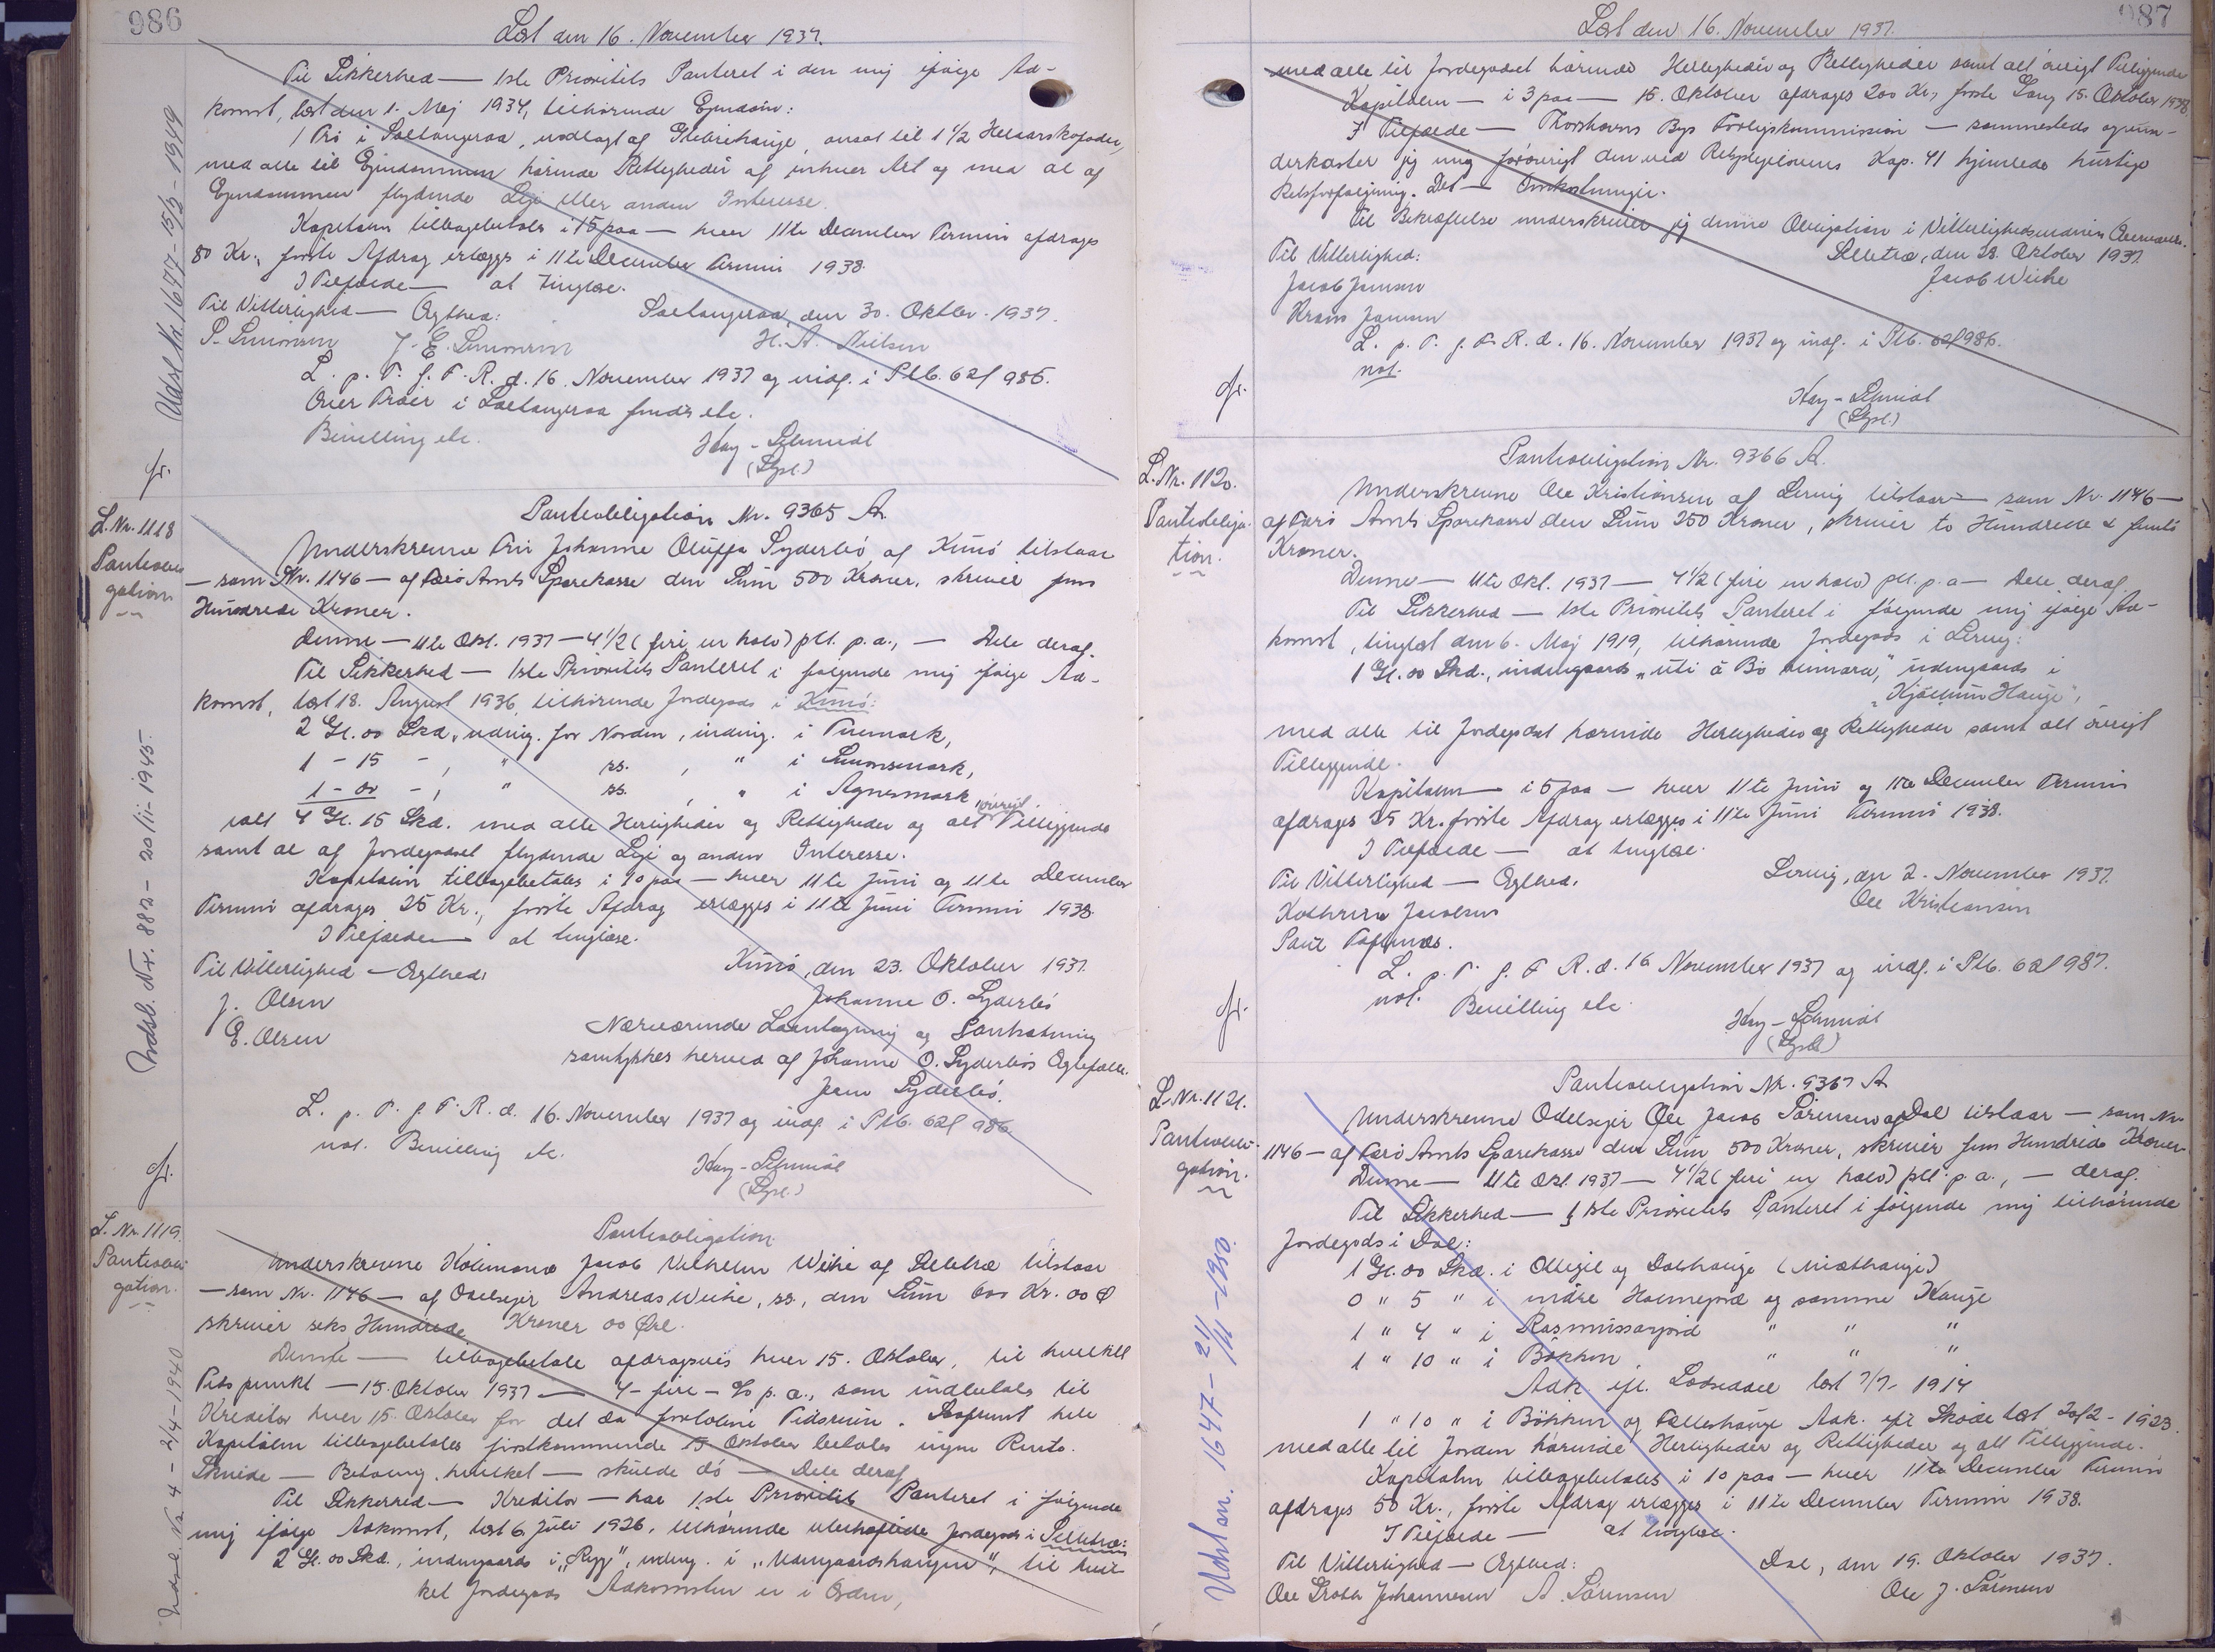 986
Læst den 16. November 1937.
Til Sikkerhed — 1ste Prioritets Panteret i den mig ifølge Ad-
komst, læst den 1. Maj 1934, tilhørende Ejendom:
1 Trö i Saltangeraa, udlagt af Glibrehauge, ansat til 1 1/2 Helaarskofoder,
med alle til Ejendommen hørende Rettigheder af enhver Art og med al af
Ejendommen flydende Leje eller anden Interesse.
Kapitalen tilbagebetales i 15 paa — hver 11te December Termin afdrages
80 Kr., første Afdrag erlægges i 11te December Termin 1938.
I Tilfælde — at tinglæse.
Til Vitterlighed — Ægthed: Saltangeraa, den 30. Oktbr. 1937.
P. Simonsen J. E. Simonsen H. A. Nielsen
L. p. T. f. F. R. d. 16. November 1937 og indf. i Ptb. 62 f 986.
Over Tröer i Saltangeraa findes etc.
Bevilling etc. Kay-Schmidt
(Sgsl.)
Udsl. No 1677 - 15/3 - 1949
L. Nr. 1118
Panteobli
gation
Panteobligation Nr. 9365 A.
Underskrevne Fru Johanne Oluffa Syderbö af Kunö tilstaar
— som Nr. 1146 — af Færö Amts Sparekasse den Sum 500 Kroner, skriver fem
Hundrede Kroner.
Denne — 11te Okt. 1937 — 4 1/2 (fire en halv) pCt. p. a., — Dele deraf.
Til Sikkerhed — 1ste Prioritets Panteret i følgende mig ifølge Ad-
komst, læst 18. August 1936, tilhørende Jordegods i Kunö:
2 Gl. 00 Skd. udmg. for Norden, indmg. i Tinmark,
1 - 15 -, " ss. , " i Simonsmark,
1 - 00 -, " ss. , " i Agnesmark,
ialt 4 Gl. 15 Skd. med alle Herligheder og Rettigheder og alt øvrigt Tilliggende
samt al af Jordegodset flydende Leje og anden Interesse.
Kapitalen tilbagebetales i 10 paa — hver 11te Juni og 11te December
Termin afdrages 25 Kr., første Afdrag erlægges i 11te Juni Termin 1938.
I Tilfælde — at tinglæse.
Til Vitterlighed — Ægthed: Kunö, den 23. Oktober 1937.
J. Olsen Johanne O. Syderbö
E. Olsen Nærværende Laantagning og Pantsætning
samtykkes herved af Johanne O. Syderbös Ægtefælle.
Jens Syderbö.
L. p. T. f. F. R. d. 16. November 1937 og indf. i Ptb. 62 f 986.
not. Bevilling etc. Kay-Schmidt
(Sgsl.)
Indsl. Nr. 882 - 20/11 - 1945.
L. Nr. 1119.
Panteobli
gation.
Panteobligation.
Underskrevne Købmand Jacob Vilhelm Weihe af Selletræ tilstaar
— som Nr. 1146 — af Odelsejer Andreas Weihe, ss., den Sum 600 Kr. 00 Ø
skriver seks Hundrede Kroner 00 Øre.
Denne — tilbagebetale afdragsvis hver 15. Oktober, til hvilket
Tidspunkt — 15. Oktober 1937 — 4 - fire - % p. a., som indbetales til
Kreditor hver 15. Oktober for det da forløbne Tidsrum. Saafremt hele
Kapitalen tilbagebetales førstkommende 15 Oktober betales ingen Rente.
Skulde — Betaling, hvilket — skulde dö — Dele deraf
Til Sikkerhed — Kreditor — har 1ste Prioritets Panteret i følgende
mig ifølge Adkomst, læst 6. Juli 1926, tilhørende ubehæftede Jordegods i Selletræ:
2 Gl. 00 Skd., indengaards i "Rygg", udmg. i "Udengaardshaugen", til hvil-
ket Jordegods Adkomsten er i Orden,
Indsl. No 4 - 2/4 - 1940
987
Læst den 16. November 1937.
med alle til Jordegodset hørende Herligheder og Rettigheder samt alt øvrigt Tilliggende
Kapitalen — i 3 paa — 15. Oktober afdrages 200 Kr., første Gang 15. Oktober 1938.
I Tilfælde — Thorshavns Bys Forligskommission — sammesteds og un-
derkaster jeg mig forøvrigt den ved Retsplejelovens Kap. 41 hjemlede hurtige
Retsforfølgning. Det — Omkostninger.
Til Bekræftelse underskriver jeg denne Obligation i Vitterlighedsvidners Overværelse.
Til Vitterlighed: Selletræ, den 28. Oktober 1937.
Jacob Jensen Jacob Weihe
Hans Jensen
L. p. T. f. F. R. d. 16. November 1937 og indf. i Ptb. 62 f 986.
not.
Kay-Schmidt
(Sgsl.)
L. Nr. 1120.
Panteobliga-
tion.
Panteobligation Nr. 9366 A.
Underskrevne Ole Kristiansen af Lervig tilstaar — som Nr. 1146 —
af Færö Amts Sparekasse den Sum 250 Kroner, skriver to Hundrede & femti
Kroner.
Denne — 11te Okt. 1937 — 4 1/2 (fire en halv) pCt. p. a — Dele deraf.
Til Sikkerhed — 1ste Prioritets Panteret i følgende mig ifølge Ad-
komst, tinglæst den 6. Maj 1919, tilhørende Jordegods i Lervig:
1 Gl. 00 Skd., indengaards "uti á Bö", udengaards i
Hauge",
med alle til Jordegodset hørende Herligheder og Rettigheder samt alt øvrigt
Tilliggende.
Kapitalen — i 5 paa — hver 11te Juni og 11te December Termin
afdrages 25 Kr. første Afdrag erlægges i 11te Juni Termin 1938.
I Tilfælde — at tinglæse.
Til Vitterlighed — Ægthed. Lervig, den 2. November 1937.
Kathrina Jacobsen Ole Kristiansen
Paul
L. p. T. f. F. R. d. 16 November 1937 og indf. i Ptb. 62 f 987.
not. Bevilling etc. Kay-Schmidt
(Sgsl.)
L. Nr. 1121.
Panteobli-
gation.
Panteobligation Nr. 9367 A
Underskrevne Odelsejer Ole Jacob Sørensen af Dal tilstaar — som Nr.
1146 — af Færö Amts Sparekasse den Sum 500 Kroner, skriver fem Hundrede Kroner.
Denne — 11te Okt. 1937 — 4 1/2 (fire en halv) pCt. p. a., — deraf.
Til Sikkerhed — 1ste Prioritets Panteret i følgende mig tilhørende
Jordegods i Dal:
1 Gl. 00 Skd. i og Dalshauge
0 " 5 " i indre og samme Hauge
1 " 4 " i " " "
1 " 10 " i Bökkum " " "
Adk. ifl. læst 7/7 - 1914
1 " 10 " i Bökkum og Fælleshauge Adk. ifl. Skøde læst 20/2 - 1923.
med alle til Jorden hørende Herligheder og Rettigheder og alt Tilliggende.
Kapitalen tilbagebetales i 10 paa — hver 11te December Termin
afdrages 50 Kr., første Afdrag erlægges i 11te December Termin 1938.
I Tilfælde — at tinglæse.
Til Vitterlighed — Ægthed: Dal, den 19. Oktober 1937.
Ole Johannesen A. Sørensen Ole J. Sørensen
1647 - 2/11 - 1950